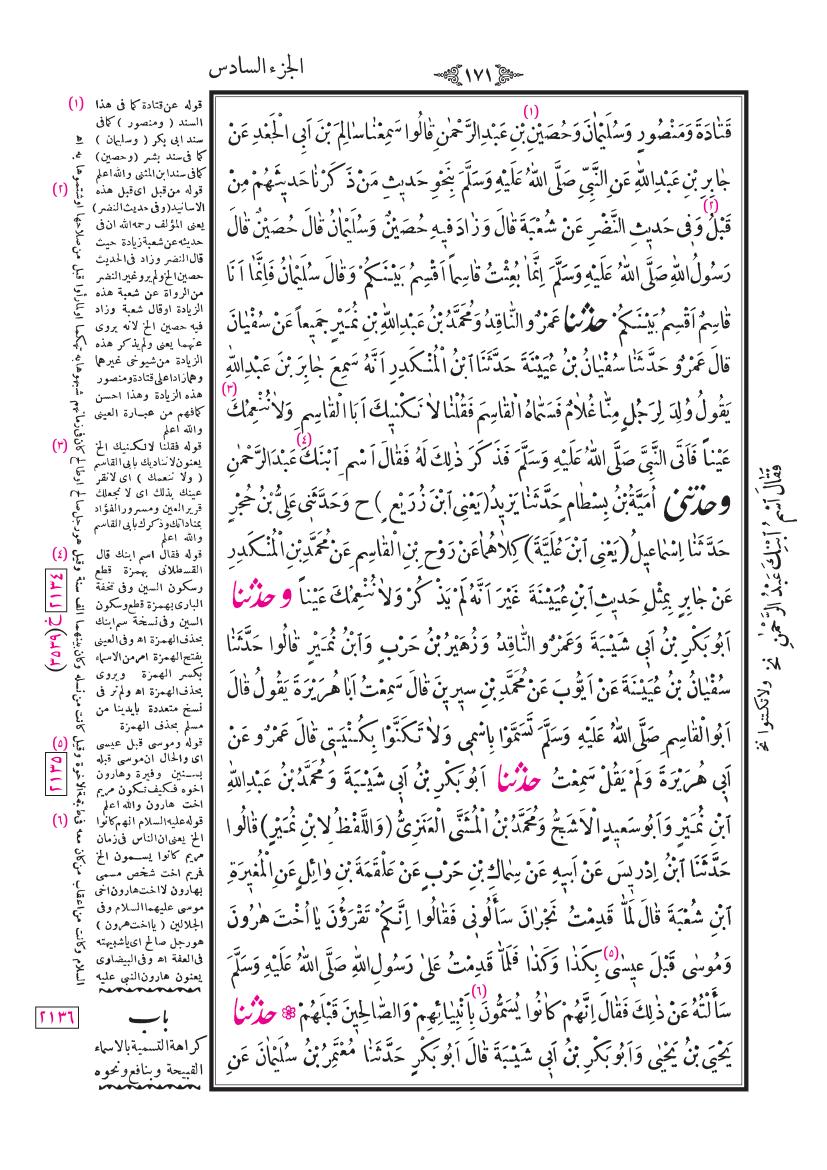 الجزء السادس
١٧١
قَتَادَةَ وَمَنْصُورٍ وَسُلَيْمَانَ وَحُصَيْنِ (١) بْنِ عَبْدِ الرَّحْمٰنِ قَالُوا سَمِعْنَا سَالِمَ بْنَ اَبِى الْجَعْدِ عَنْ
جَابِرِ بْنِ عَبْدِ اللهِ عَنِ النَّبِىِّ صَلَّى اللهُ عَلَيْهِ وَسَلَّمَ بِنَحْوِ حَدِيثِ مَنْ ذَكَرْنَا حَدِيثَهُمْ مِنْ
قَبْلُ (٢) وَفِى حَدِيثِ النَّضْرِ عَنْ شُعْبَةَ قَالَ وَزَادَ فِيهِ حُصَيْنٌ وَسُلَيْمَانُ قَالَ حُصَيْنٌ قَالَ
رَسُولُ اللهِ صَلَّى اللهُ عَلَيْهِ وَسَلَّمَ اِنَّمَا بُعِثْتُ قَاسِماً اَقْسِمُ بَيْنَكُمْ وَقَالَ سُلَيْمَانُ فَاِنَّمَا اَنَا
قَاسِمٌ اَقْسِمُ بَيْنَكُمْ حَدَّثَنَا عَمْرٌو النَّاقِدُ وَمُحَمَّدُ بْنُ عَبْدِ اللهِ بْنِ نُمَيْرٍ جَمِيعاً عَنْ سُفْيَانَ
قَالَ عَمْرٌو حَدَّثَنَا سُفْيَانُ بْنُ عُيَيْنَةَ حَدَّثَنَا ابْنُ الْمُنْكَدِرِ اَنَّهُ سَمِعَ جَابِرَ بْنَ عَبْدِ اللهِ
يَقُولُ وُلِدَ لِرَجُلٍ مِنَّا غُلَامٌ فَسَمَّاهُ الْقَاسِمَ فَقُلْنَا لَا نَكْنِيكَ اَبَا الْقَاسِمِ وَلَا نُنْعِمُكَ (٣)
عَيْناً فَاَتَى النَّبِىَّ صَلَّى اللهُ عَلَيْهِ وَسَلَّمَ فَذَكَرَ ذٰلِكَ لَهُ فَقَالَ (٤) اَسْمِ ابْنَكَ عَبْدَ الرَّحْمٰنِ
وحَدَّثَنِى اُمَيَّةُ بْنُ بِسْطَامٍ حَدَّثَنَا يَزِيدُ (يَعْنِى ابْنَ زُرَيْعٍ) ح وَحَدَّثَنِى عَلِىُّ بْنُ حُجْرٍ
حَدَّثَنَا اِسْمَاعِيلُ (يَعْنِى ابْنَ عُلَيَّةَ) كِلَاهُمَا عَنْ رَوْحِ بْنِ الْقَاسِمِ عَنْ مُحَمَّدِ بْنِ الْمُنْكَدِرِ
عَنْ جَابِرٍ بِمِثْلِ حَدِيثِ ابْنِ عُيَيْنَةَ غَيْرَ اَنَّهُ لَمْ يَذْكُرْ وَلَا نُنْعِمُكَ عَيْناً وحَدَّثَنَا
اَبُو بَكْرِ بْنُ اَبِى شَيْبَةَ وَعَمْرٌو النَّاقِدُ وَزُهَيْرُ بْنُ حَرْبٍ وَابْنُ نُمَيْرٍ قَالُوا حَدَّثَنَا
سُفْيَانُ بْنُ عُيَيْنَةَ عَنْ اَيُّوبَ عَنْ مُحَمَّدِ بْنِ سِيرِينَ قَالَ سَمِعْتُ اَبَا هُرَيْرَةَ يَقُولُ قَالَ
اَبُو الْقَاسِمِ صَلَّى اللهُ عَلَيْهِ وَسَلَّمَ تَسَمَّوْا بِاسْمِى وَلَا تَكَنَّوْا بِكُنْيَتِى قَالَ عَمْرٌو عَنْ
اَبِى هُرَيْرَةَ وَلَمْ يَقُلْ سَمِعْتُ حَدَّثَنَا اَبُو بَكْرِ بْنُ اَبِى شَيْبَةَ وَمُحَمَّدُ بْنُ عَبْدِ اللهِ
ابْنِ نُمَيْرٍ وَاَبُو سَعِيدٍ الْاَشَجُّ وَمُحَمَّدُ بْنُ الْمُثَنَّى الْعَنَزِىُّ (وَاللَّفْظُ لِابْنِ نُمَيْرٍ) قَالُوا
حَدَّثَنَا ابْنُ اِدْرِيسَ عَنْ اَبِيهِ عَنْ سِمَاكِ بْنِ حَرْبٍ عَنْ عَلْقَمَةَ بْنِ وَائِلٍ عَنِ الْمُغِيرَةِ
ابْنِ شُعْبَةَ قَالَ لَمَّا قَدِمْتُ نَجْرَانَ سَأَلُونِى فَقَالُوا اِنَّكُمْ تَقْرَؤُنَ يَا اُخْتَ هٰرُونَ
وَمُوسٰى قَبْلَ عِيسٰى (٥) بِكَذَا وَكَذَا فَلَمَّا قَدِمْتُ عَلٰى رَسُولِ اللهِ صَلَّى اللهُ عَلَيْهِ وَسَلَّمَ
سَأَلْتُهُ عَنْ ذٰلِكَ فَقَالَ اِنَّهُمْ كَانُوا يُسَمُّونَ (٦) بِاَنْبِيَائِهِمْ وَالصَّالِحِينَ قَبْلَهُمْ حَدَّثَنَا
يَحْيَى بْنُ يَحْيٰى وَاَبُو بَكْرِ بْنُ اَبِى شَيْبَةَ قَالَ اَبُو بَكْرٍ حَدَّثَنَا مُعْتَمِرُ بْنُ سُلَيْمَانَ عَنْ
فَقَالَ اَسْمِ ابْنَكَ عَبْدَ الرَّحْمٰنِ نخ
ولا تكنوا نخ
(١) قوله عن قتادة كما فى هذا
السند (ومنصور) كما فى
سند ابى بكر (وسليمان)
كما فى سند بشر (وحصين)
كما فى سند ابن المثنى والله اعلم
(٢) قوله من قبل اى قبل هذه
الاسانيد (وفى حديث النضر)
يعنى المؤلف رحمه الله ان فى
حديثه عن شعبة زيادة حيث
قال النضر وزاد فى الحديث
حصين الخ ولم يرو غير النضر
من الرواة عن شعبة هذه
الزيادة او قال شعبة وزاد
فيه حصين الخ لانه يروى
عنهما يعنى ولم يذكر هذه
الزيادة من شيوخى غيرهما
وهما زادا على قتادة ومنصور
هذه الزيادة وهذا احسن
كما فهم من عبارة العينى
والله اعلم
(٣) قوله فقلنا لا نكنيك الخ
يعنون لا نناديك بابى القاسم
(ولا ننعمك) اى لا نقر
عينك بذلك اى لا نجعلك
قرير العين ومسرور الفؤاد
بمناداتك وذكرك بابى القاسم
والله اعلم
(٤) قوله فقال اسم ابنك قال
القسطلانى بهمزة قطع
وسكون السين وفى نخفة
البارى بهمزة قطع وسكون
السين وفى نسخة سم ابنك
بحذف الهمزة اه وفى العينى
بفتح الهمزة امر من الاسماء
بكسر الهمزة ويروى
بحذف الهمزة اه ولم نر فى
نسخ متعددة بايدينا من
مسلم بحذف الهمزة
(٥) قوله وموسى قبل عيسى
اى والحال ان موسى قبله
بسنين وفيرة وهارون
اخوه فكيف تكون مريم
اخت هارون والله اعلم
(٦) قوله عليه السلام انهم كانوا
الخ يعنى ان الناس فى زمان
مريم كانوا يسمون الخ
فمريم اخت شخص مسمى
بهارون لا اخت هارون اخى
موسى عليهما السلام وفى
الجلالين (يا اخت هرون)
هو رجل صالح اى يا شبيهته
فى العفة اه وفى البيضاوى
يعنون هارون النبى عليه
السلام وكانت من اعقاب من كان معه فى طبقة الاخوة وقيل كانت من نسله وكان بينهما الف سنة وقيل هو رجل صالح او طالح كان فى زمانهم شبهوها به تهكما او لما رأوا قبل من صلاحها او شتموها به اه
٢١٣٤
خ(٣٥٣٩)
٢١٣٥
٢١٣٦
باب
كراهة التسمية بالاسماء
القبيحة وبنافع ونحوه